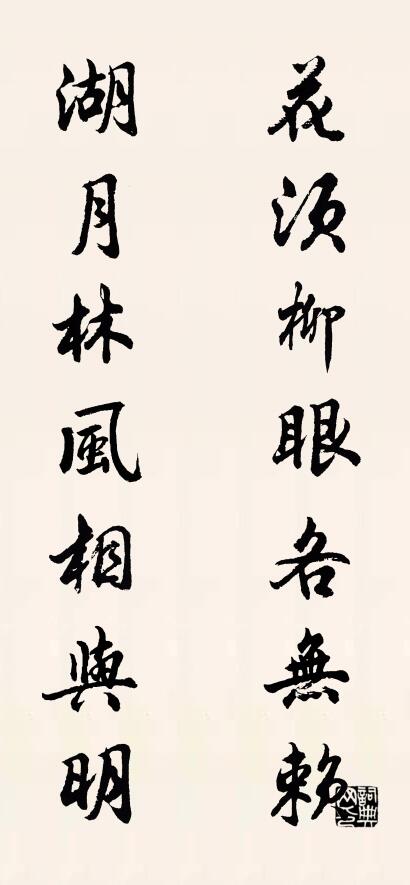 花须柳眼各無賴
湖月林風相與明